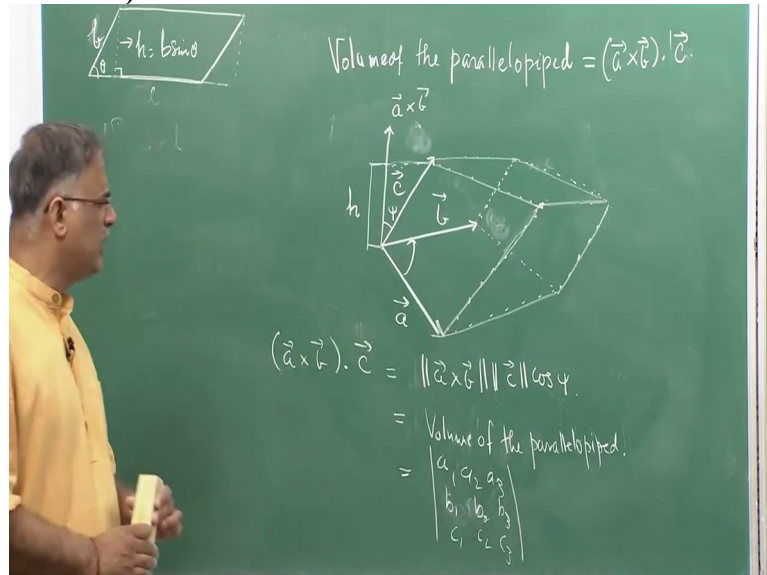 b
θ
→ h = b sinθ
l
Volume of the parallelopiped = (a⃗ × b⃗) · c⃗.
a⃗ × b⃗
h
c⃗
ψ
b⃗
a⃗
(a⃗ × b⃗) · c⃗ = ||a⃗ × b⃗|| ||c⃗|| cos ψ.
= Volume of the parallelopiped.
= | a₁ a₂ a₃
b₁ b₂ b₃
c₁ c₂ c₃ |